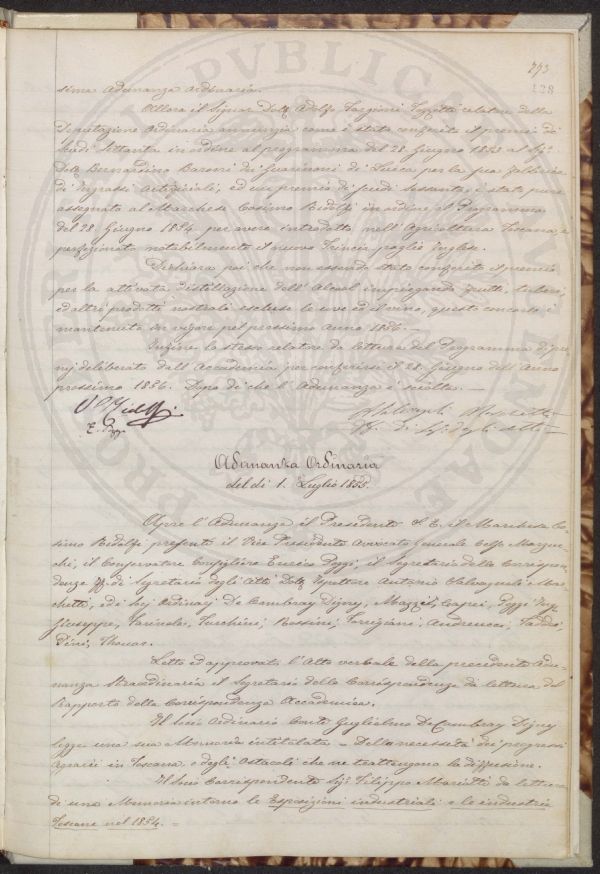 273
138
sima Adunanza Ordinaria.
Allora il Signor Dott. Adolfo Targioni Tozzetti relatore della
Deputazione Ordinaria annunzia come è stato conferito il premio di
Scudi Settanta in ordine al programma del 28. Giugno 1853 al Sig.
Dott. Bernardino Baroni di Lucca per la sua fabbrica
di Ingrassi Artificiali; ed un premio di scudi sessanta, è stato pure
assegnato al Marchese Cosimo Ridolfi in ordine al Programma
del 28. Giugno 1854 per avere introdotto nell'Agricoltura Toscana, e
perfezionato notabilmente il nuovo Trincia paglia Inglese.
Dichiara poi che non essendo stato conferito il premio
per la attivata distillazione dell'Alcool impiegando frutti, tuberi,
ed altri prodotti nostrali escluse le uve ed il vino, questo concorso è
mantenuto in vigore pel prossimo Anno 1856. —
Infine lo stesso relatore da lettura del Programma di pre-
mj deliberato dall'Accademia per conferirsi il 28. Giugno dell'Anno
prossimo 1856. Dopo di che l'Adunanza è sciolta. —
E. Poggi
Adunanza Ordinaria
del dì 1. Luglio 1855.
Apre l'Adunanza il Presidente S. E. il Marchese Co-
simo Ridolfi presenti il Vice Presidente Avvocato Generale Celso Marzuc-
chi, il Conservatore Consigliere Enrico Poggi, il Segretario delle Corrispon-
denze ff. di Segretario degli Atti Dott. Ispettore Antonio Salvagnoli Mar-
chetti, ed i Socj Ordinarj De Cambray Digny, Capei, Poggi
Giuseppe, Farinola, Turchini, Rossini, Torrigiani, Andreucci, Taddei,
Dini, Thouar.
Letto ed approvato l'Atto verbale della precedente Adu-
nanza Straordinaria il Segretario delle Corrispondenze da lettura del
Rapporto della Corrispondenza Accademica.
Il Socio Ordinario Conte Guglielmo De Cambray Digny
legge una sua Memoria intitolata — Della necessità dei progressi
agrarii in Toscana e degli Ostacoli che ne trattengono la diffusione.
Il Socio Corrispondente Sig. Filippo Mariotti da lettura
di una Memoria intorno le Esposizioni industriali e le industrie
Toscane nel 1854. =